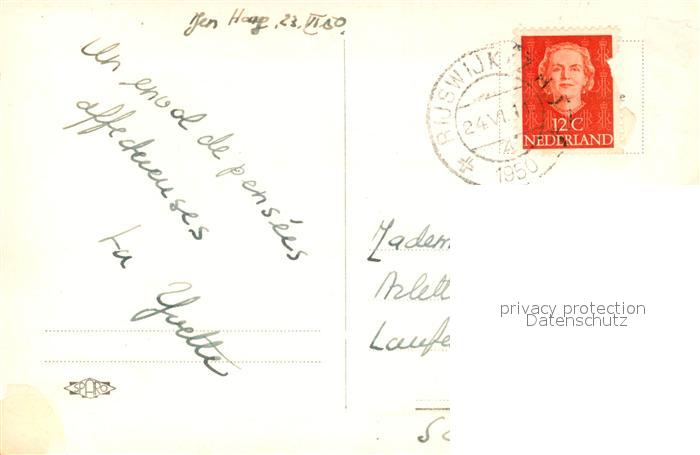 Den Haag, 23. VI. 50.
Un envol de pensées
affectueuses
ta Yvette
SPARO
RIJSWIJK
24.VI.1
1950
12 C
NEDERLAND
Madem
Arlett
Laufe
privacy protection
Datenschutz